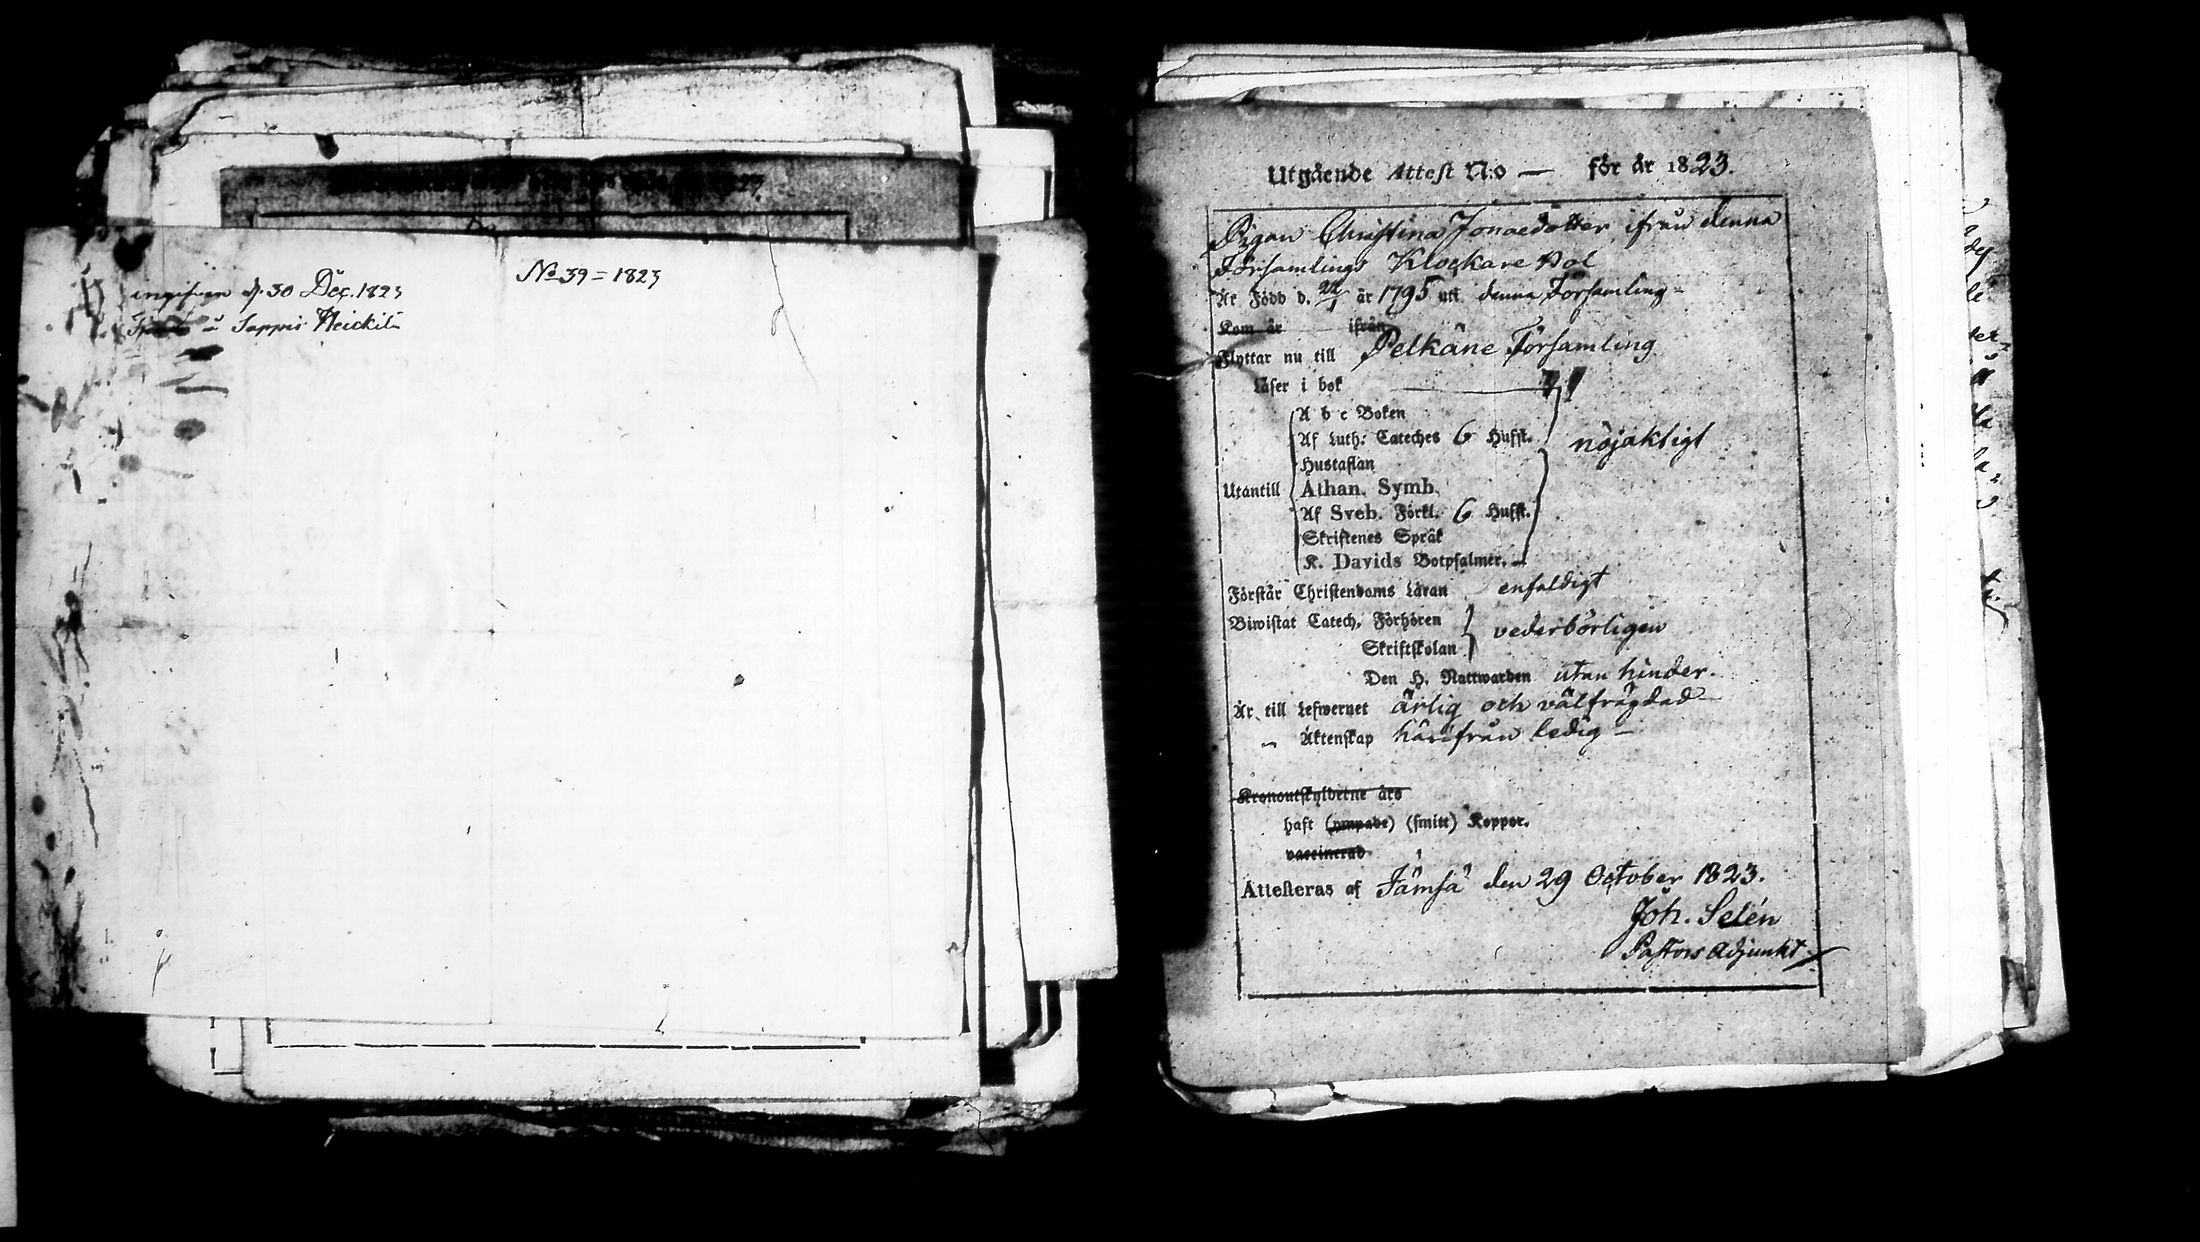 No 39 = 1823
d. 30 Dec. 1823
Sappis Heickilä
Utgående Attest N:o — för år 1823.
Pigan Christina Jonaedotter ifrån denna
Församlings Klockare Bol
Är Född d. 22/1 år 1795 uti denna Församling -
Kom år ifrån
Flyttar nu till Pelkäne Församling
Läser i bok
A b c Boken
Af Luth: Cateches 6 Hufst. nöjaktigt
Hustaflan
Utantill Athan. Symb.
Af Sveb. Förkl. 6 Hufst.
Skriftenes Språk
K. Davids Botpsalmer.
Förstår Christendoms Läran enfaldigt
Biwistat Catech. Förhören vederbörligen
Skriftskolan
Den H. Nattwarden utan hinder.
Är till Lefwernet ärlig och välfrägdad
„ Äktenskap härifrån ledig —
Kronoutskylderne års
haft (ympade) (smitt) Koppor.
vaccinerad
Attesteras af Jämsä den 29 October 1823.
Joh. Selén
Pastors Adjunkt